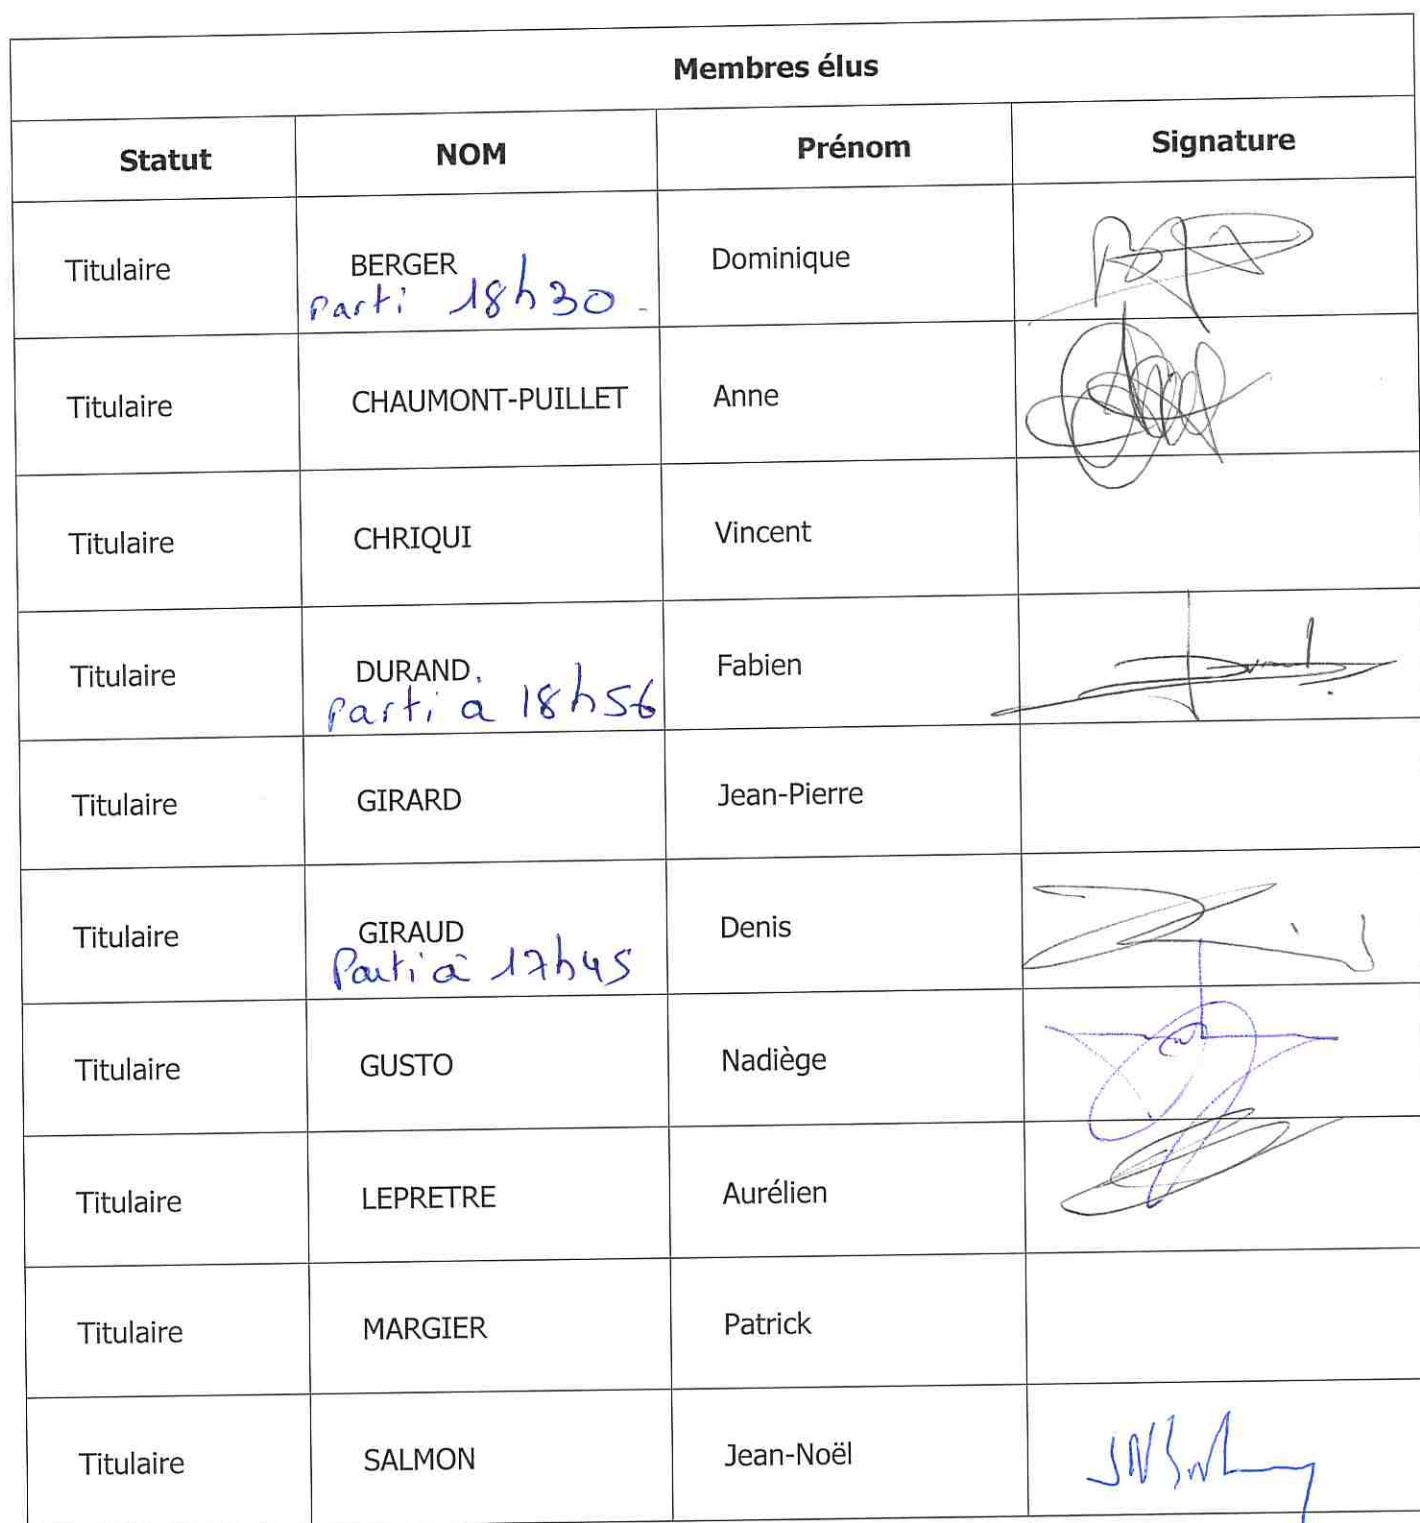 Membres élus
Statut NOM Prénom Signature
Titulaire BERGER Dominique
Parti 18h30
Titulaire CHAUMONT-PUILLET Anne
Titulaire CHRIQUI Vincent
Titulaire DURAND Fabien
Parti à 18h56
Titulaire GIRARD Jean-Pierre
Titulaire GIRAUD Denis
Parti à 17h45
Titulaire GUSTO Nadiège
Titulaire LEPRETRE Aurélien
Titulaire MARGIER Patrick
Titulaire SALMON Jean-Noël